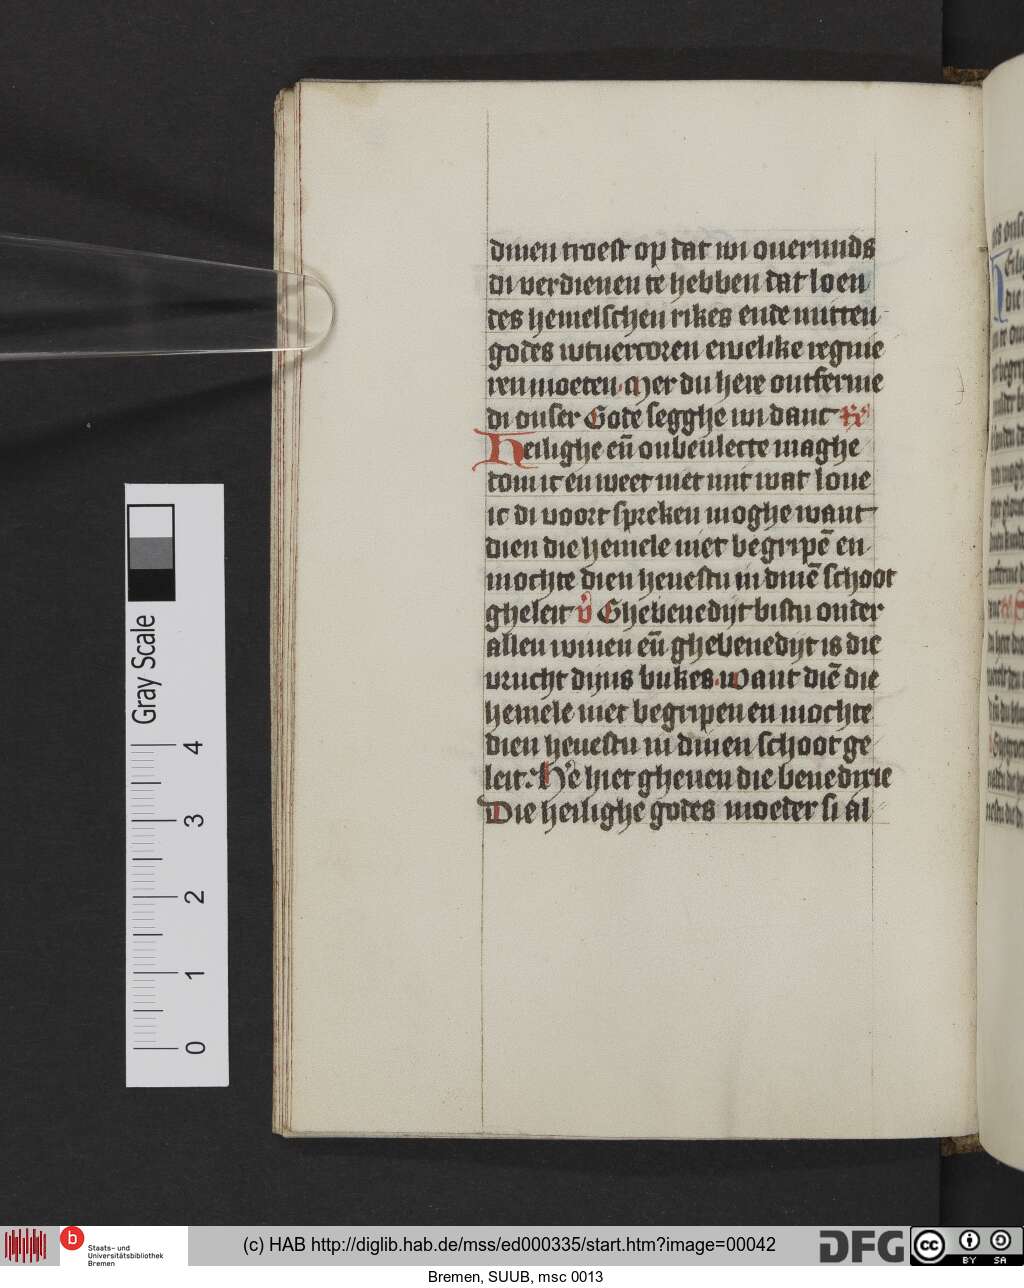 dinen troest op dat wi ouermids
di verdienen te hebben dat loen
des hemelschen rikes ende mitten
godes wtuercoren ewelike regnie
ren moeten. Mer du here ontferme
di onser Gode segghe wi danc R
Heilighe eñ onbeulecte maghe
dom ic en weet niet mit wat loue
ic di voort spreken moghe want
dien die hemele niet begripē en
mochte dien heuestu in dinē schoot
gheleit V Ghebenedijt bistu onder
allen wiuen eñ ghebenedijt is die
vrucht dijns bukes. Want diē die
hemele niet begripen en mochte
dien heuestu in dinen schoot ge
leit. He hiet gheuen die benedixie
Die heilighe godes moeder si al
Gray Scale
4
3
2
1
0
b
Staats- und
Universitätsbibliothek
Bremen
(c) HAB http://diglib.hab.de/mss/ed000335/start.htm?image=00042
DFG
cc
BY SA
Bremen, SUUB, msc 0013